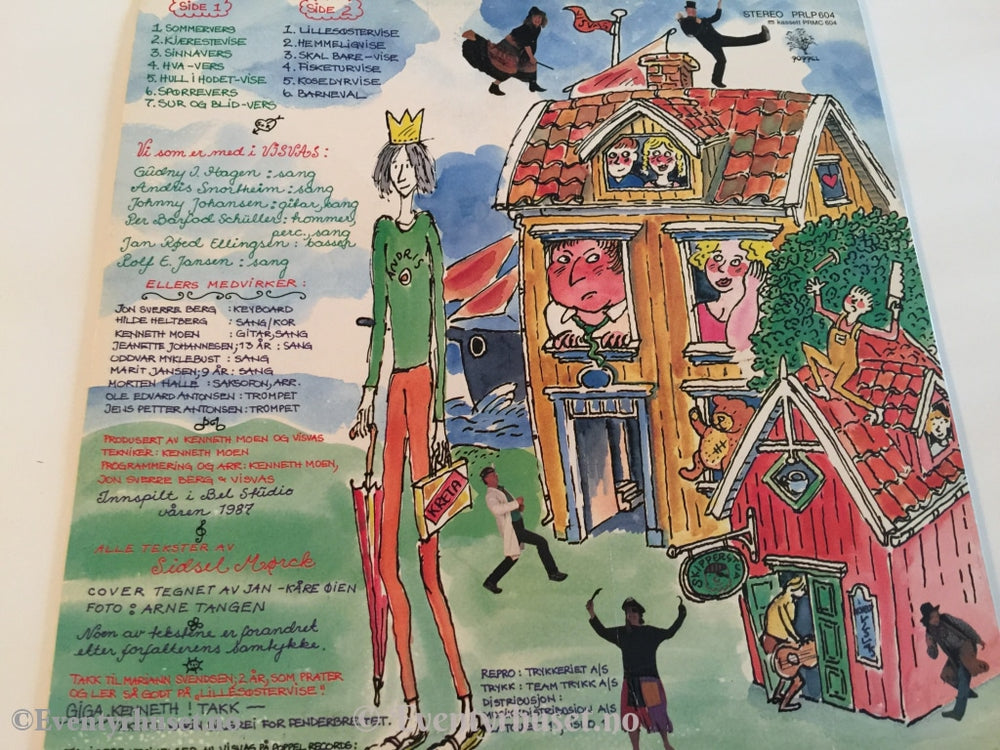 SIDE 1
1. SOMMERVERS
2. KJÆRESTEVISE
3. SINNAVERS
4. HVA-VERS
5. HULL I HODET-VISE
6. SPØRREVERS
7. SUR OG BLID-VERS
SIDE 2
1. LILLESØSTERVISE
2. HEMMELIGVISE
3. SKAL BARE-VISE
4. FISKETURVISE
5. KOSEDYRVISE
6. BARNEVAL
VISVAS
STEREO PRLP 604
kassett PRMC 604
POPPEL
Vi som er med i VISVAS:
Gudny I. Hagen : sang
Andris Snortheim : sang
Johnny Johansen : gitar, sang
Per Barfod Schüller : trommer,
perc., sang
Jan Roed Ellingsen : basser
Rolf E. Jansen : sang
ELLERS MEDVIRKER :
JON SVERRE BERG : KEYBOARD
HILDE HELTBERG : SANG/KOR
KENNETH MOEN : GITAR, SANG
JEANETTE JOHANNESEN; 13 ÅR : SANG
ODDVAR MYKLEBUST : SANG
MARIT JANSEN; 9 ÅR : SANG
MORTEN HALLE : SAKSOFON, ARR.
OLE EDVARD ANTONSEN : TROMPET
JENS PETTER ANTONSEN : TROMPET
PRODUSERT AV KENNETH MOEN OG VISVAS
TEKNIKER : KENNETH MOEN
PROGRAMMERING OG ARR : KENNETH MOEN,
JON SVERRE BERG & VISVAS
Innspilt i Bel Studio
våren 1987
ALLE TEKSTER AV
Sidsel Mørck
COVER TEGNET AV JAN-KÅRE ØIEN
FOTO : ARNE TANGEN
Noen av tekstene er forandret
etter forfatterens samtykke.
TAKK TIL MARIANN SVENDSEN; 2 ÅR, SOM PRATER
OG LER SÅ GODT PÅ "LILLESØSTERVISE"
GIGA KENNETH ! TAKK —
FOR PENDERBRETTET.
VISVAS PÅ POPPEL RECORDS :
ANDRIS
KRETA
SLIPPERS
REPRO : TRYKKERIET A/S
TRYKK : TEAM TRYKK A/S
DISTRIBUSJON :
©Eventyrhuset.no